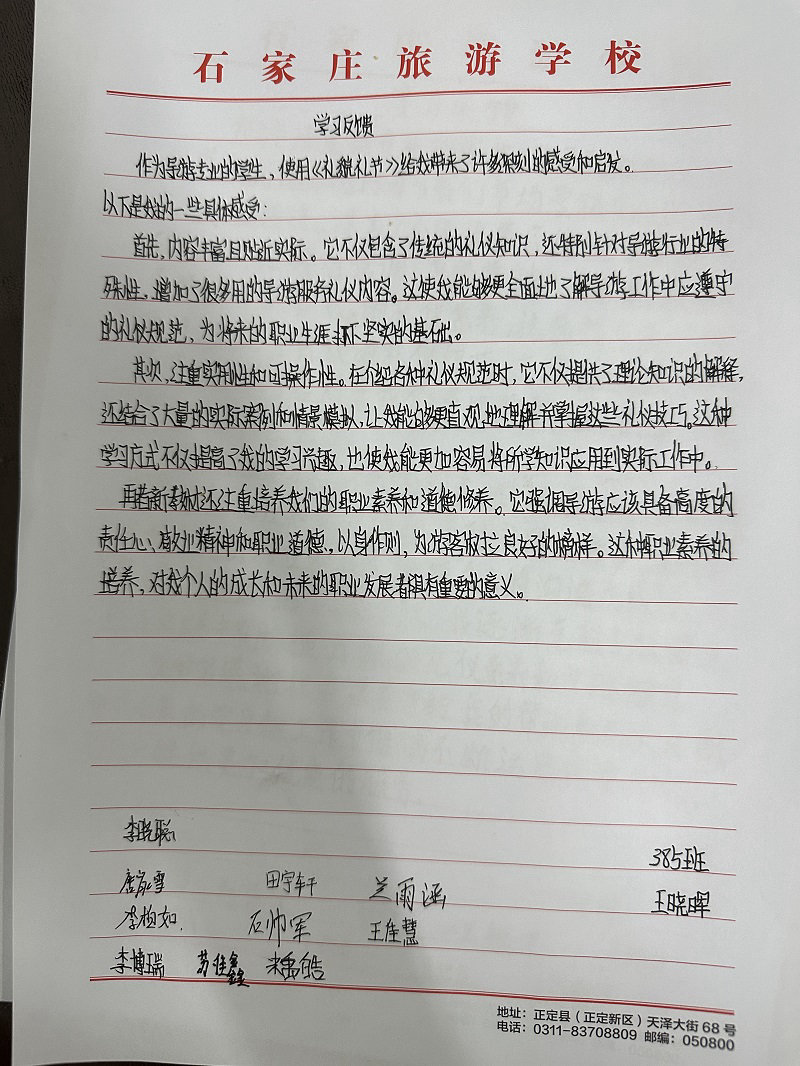 石家庄旅游学校
学习反馈
作为导游专业的学生，使用《礼貌礼节》给我带来了许多深刻的感受和启发。
以下是我的一些具体感受：
首先，内容丰富且贴近实际。它不仅包含了传统的礼仪知识，还特别针对导游行业的特
殊性，增加了很多用的导游服务礼仪内容。这使我能够更全面地了解导游工作中应遵守
的礼仪规范，为将来的职业生涯打下坚实的基础。
其次，注重实用性和可操作性。在介绍各种礼仪规范时，它不仅提供了理论知识的解释，
还结合了大量的实际案例和情景模拟，让我能够更直观地理解并掌握这些礼仪技巧。这种
学习方式不仅提高了我的学习兴趣，也使我能更加容易将所学知识应用到实际工作中。
再者新教材还注重培养我们的职业素养和道德修养。它强调导游应该具备高度的
责任心、敬业精神和职业道德，以身作则，为游客树立良好的榜样。这种职业素养的
培养，对我个人的成长和未来的职业发展都具有重要的意义。
李晓聪
385班
唐家雪 田宇轩 兰雨涵 王晓晖
李柏如 石帅军 王佳慧
李博瑞 苏佳鑫
地址：正定县（正定新区）天泽大街 68 号
电话：0311-83708809 邮编：050800